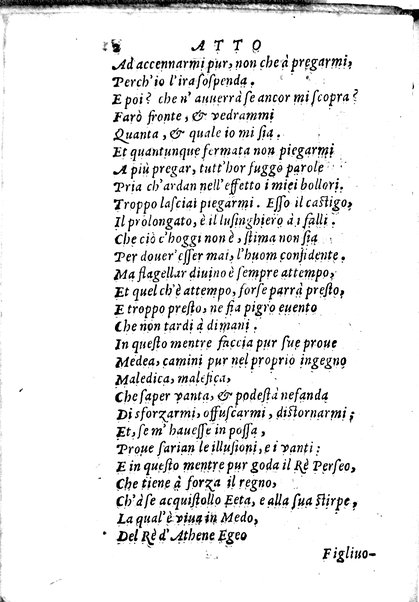 ATTO
Ad accennarmi pur, non che à pregarmi,
Perch'io l'ira sospenda.
E poi? che n' auuerrà se ancor mi scopra?
Farò fronte, & vedrammi
Quanta, & quale io mi sia.
Et quantunque fermata non piegarmi
A più pregar, tutt'hor fuggo parole
Pria ch'ardan nell'effetto i miei bollori.
Troppo lasciai piegarmi. Esso il castigo,
Il prolongato, è il lusinghiero à i falli.
Che ciò c'hoggi non è, stima non sia
Per douer'esser mai, l'huom confidente.
Ma flagellar diuino è sempre attempo,
Et quel ch'è attempo, forse parrà presto,
E troppo presto, ne fia pigro euento
Che non tardi à dimani.
In questo mentre faccia pur sue proue
Medea, camini pur nel proprio ingegno
Maledica, malefica,
Che saper vanta, & podestà nefanda
Di sforzarmi, offuscarmi, distornarmi;
Et, se m' hauesse in possa,
Proue sarian le illusioni, e i vanti:
E in questo mentre pur goda il Rè Perseo,
Che tiene à forza il regno,
Ch'à se acquistollo Eeta, e alla sua stirpe,
La qual'è viua in Medo,
Del Rè d'Athene Egeo
Figliuo-